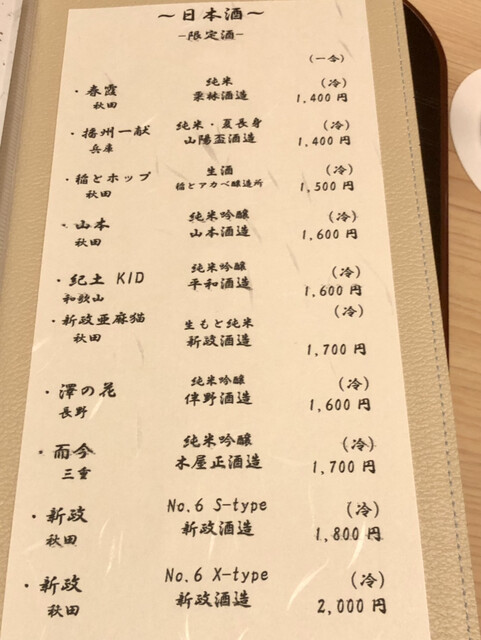 ～日本酒～
－限定酒－
(一合)
・春霞 純米 (冷)
秋田 栗林酒造 1,400 円
・播州一献 純米・夏辰身 (冷)
兵庫 山陽盃酒造 1,400 円
・稲とホップ 生酒 (冷)
秋田 稲とアカベ醸造所 1,500 円
・山本 純米吟醸 (冷)
秋田 山本酒造 1,600 円
・紀土 KID 純米吟醸 (冷)
和歌山 平和酒造 1,600 円
・新政亜麻猫 生もと純米 (冷)
秋田 新政酒造 1,700 円
・澤の花 純米吟醸 (冷)
長野 伴野酒造 1,600 円
・而今 純米吟醸 (冷)
三重 木屋正酒造 1,700 円
・新政 No.6 S-type (冷)
秋田 新政酒造 1,800円
・新政 No.6 X-type (冷)
秋田 新政酒造 2,000 円